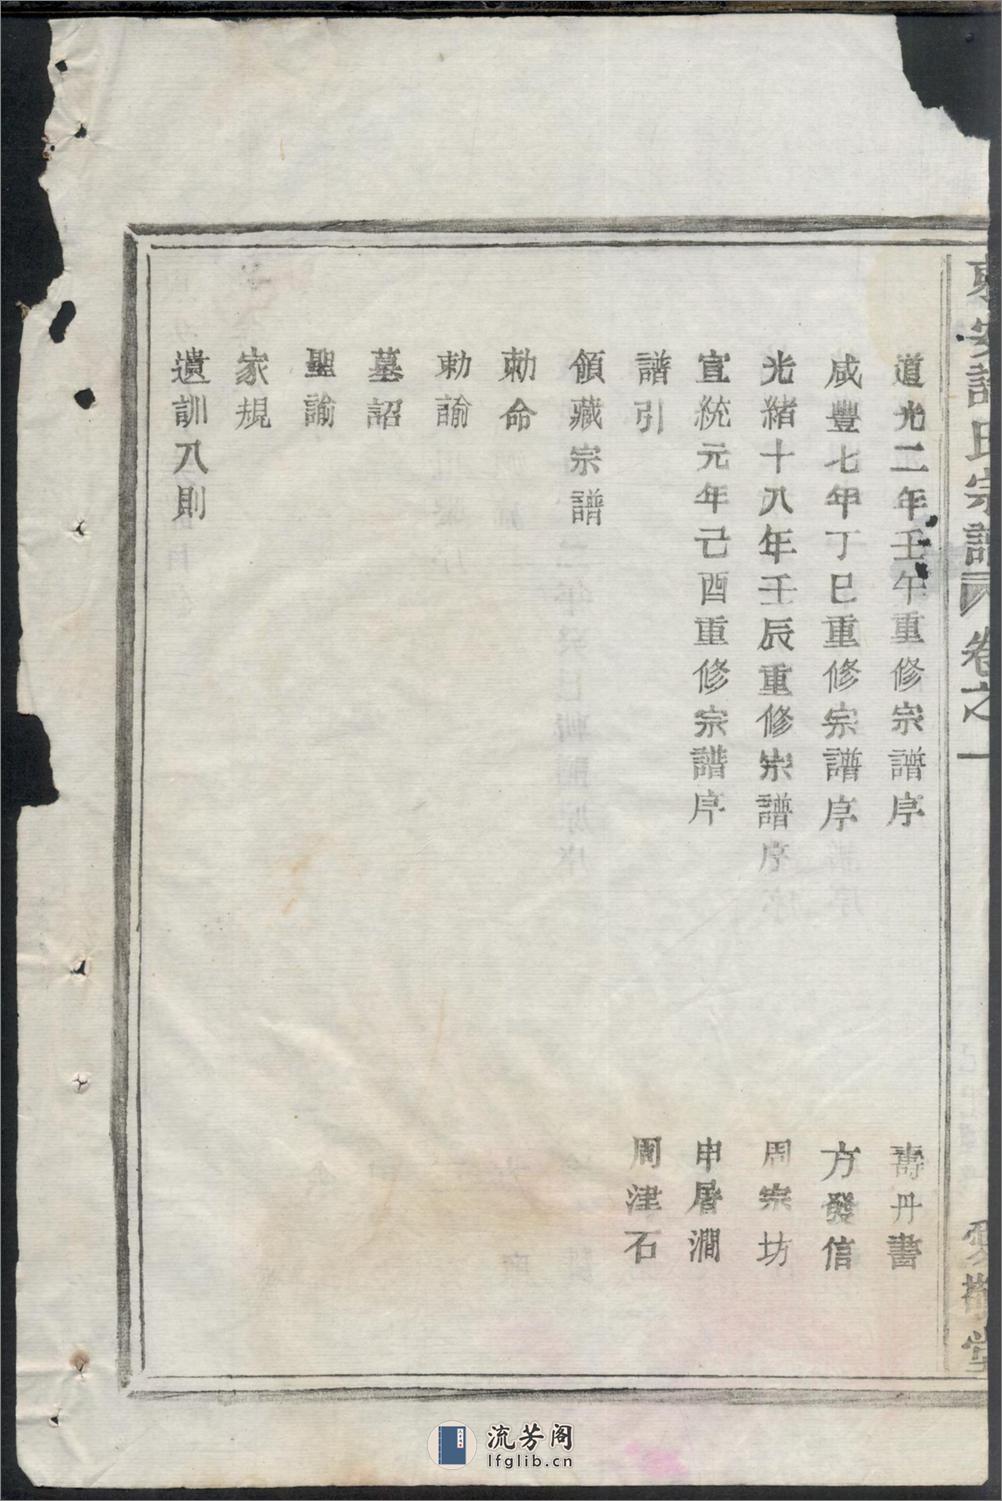 宗譜 卷之一
道光二年壬午重修宗譜序 壽丹書
咸豐七甲丁巳重修宗譜序 方發信
光緒十八年壬辰重修宗譜序 周宗坊
宣統元年己酉重修宗譜序 申屠澗
譜引 周津石
領藏宗譜
勅命
勅諭
墓詔
聖諭
家規
遺訓八則
流芳阁
lfglib.cn